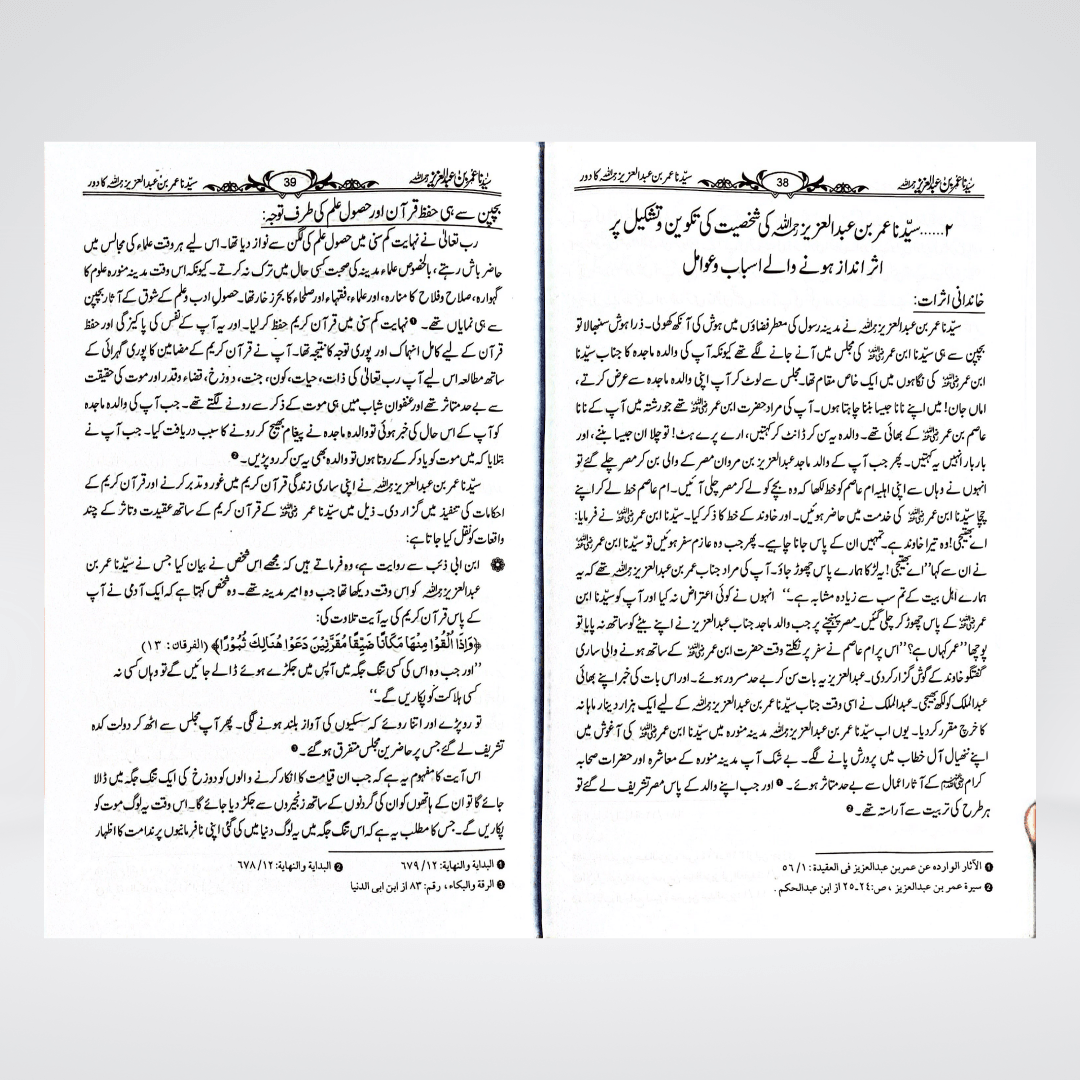 سیّدنا عمر بن عبدالعزیز رحمہ اللہ 38 سیّدنا عمر بن عبدالعزیز رحمہ اللہ کا دور
۲......سیّدنا عمر بن عبدالعزیز رحمہ اللہ کی شخصیت کی تکوین و تشکیل پر
اثر انداز ہونے والے اسباب و عوامل
خاندانی اثرات:
سیّدنا عمر بن عبدالعزیز رحمہ اللہ نے مدینہ رسول کی معطر فضاؤں میں ہوش کی آنکھ کھولی۔ ذرا ہوش سنبھالا تو
بچپن سے ہی سیّدنا ابن عمر رضی اللہ عنہ کی مجلس میں آنے جانے لگے تھے کیونکہ آپ کی والدہ ماجدہ کا جناب سیّدنا
ابن عمر رضی اللہ عنہ کی نگاہوں میں ایک خاص مقام تھا۔ مجلس سے لوٹ کر آپ اپنی والدہ ماجدہ سے عرض کرتے،
اماں جان! میں اپنے نانا جیسا بننا چاہتا ہوں۔ آپ کی مراد حضرت ابن عمر رضی اللہ عنہ تھے جو رشتہ میں آپ کے نانا
عاصم بن عمر رضی اللہ عنہ کے بھائی تھے۔ والدہ یہ سن کر ڈانٹ کر کہتیں، ارے پرے ہٹ! تو چلا ان جیسا بننے، اور
بار بار انہیں یہ کہتیں۔ پھر جب آپ کے والد ماجد عبدالعزیز بن مروان مصر کے والی بن کر مصر چلے گئے تو
انہوں نے وہاں سے اپنی اہلیہ ام عاصم کو خط لکھا کہ وہ بچے کو لے کر مصر چلی آئیں۔ ام عاصم خط لے کر اپنے
چچا سیّدنا ابن عمر رضی اللہ عنہ کی خدمت میں حاضر ہوئیں۔ اور خاوند کے خط کا ذکر کیا۔ سیّدنا ابن عمر رضی اللہ عنہ نے فرمایا:
اے بھتیجی! وہ تیرا خاوند ہے۔ تمہیں ان کے پاس جانا چاہیے۔ پھر جب وہ عازم سفر ہوئیں تو سیّدنا ابن عمر رضی اللہ عنہ
نے ان سے کہا ”اے بھتیجی! یہ لڑکا ہمارے پاس چھوڑ جاؤ۔ آپ کی مراد جناب عمر بن عبدالعزیز رحمہ اللہ تھے کہ یہ
ہمارے اہل بیت کے تم سب سے زیادہ مشابہ ہے۔“ انہوں نے کوئی اعتراض نہ کیا اور آپ کو سیّدنا ابن
عمر رضی اللہ عنہ کے پاس چھوڑ کر چلی گئیں۔ مصر پہنچنے پر جب والد ماجد جناب عبدالعزیز نے اپنے بیٹے کو ساتھ نہ پایا تو
پوچھا ”عمر کہاں ہے؟“ اس پر ام عاصم نے سفر پر نکلتے وقت حضرت ابن عمر رضی اللہ عنہ کے ساتھ ہونے والی ساری
گفتگو خاوند کے گوش گزار کر دی۔ عبدالعزیز یہ بات سن کر بے حد مسرور ہوئے۔ اور اس بات کی خبر اپنے بھائی
عبدالملک کو لکھ بھیجی۔ عبدالملک نے اسی وقت جناب سیّدنا عمر بن عبدالعزیز رحمہ اللہ کے لیے ایک ہزار دینار ماہانہ
کا خرچ مقرر کر دیا۔ یوں اب سیّدنا عمر بن عبدالعزیز رحمہ اللہ مدینہ منورہ میں سیّدنا ابن عمر رضی اللہ عنہ کی آغوش میں
اپنے ننھیال آل خطاب میں پرورش پانے لگے۔ بے شک آپ مدینہ منورہ کے معاشرہ اور حضرات صحابہ
کرام رضی اللہ عنہم کے آثار اعمال سے بے حد متاثر ہوئے۔❶ اور جب اپنے والد کے پاس مصر تشریف لے گئے تو
ہر طرح کی تربیت سے آراستہ تھے۔❷
❶ الآثار الوارده عن عمر بن عبدالعزیز فی العقیدة: ۱/ ۵۶
❷ سیرة عمر بن عبدالعزیز، ص: ۲۴۔۲۵ از ابن عبدالحکم .
سیّدنا عمر بن عبدالعزیز رحمہ اللہ 39 سیّدنا عمر بن عبدالعزیز رحمہ اللہ کا دور
بچپن سے ہی حفظ قرآن اور حصول علم کی طرف توجہ:
رب تعالیٰ نے نہایت کم سنی میں حصول علم کی لگن سے نواز دیا تھا۔ اس لیے ہر وقت علماء کی مجالس میں
حاضر باش رہتے، بالخصوص علماء مدینہ کی صحبت کسی حال میں ترک نہ کرتے۔ کیونکہ اس وقت مدینہ منورہ علوم کا
گہوارہ، صلاح و فلاح کا منارہ، اور علماء، فقہاء اور صلحاء کا بحر زخار تھا۔ حصول ادب و علم کے شوق کے آثار بچپن
سے ہی نمایاں تھے۔❶ نہایت کم سنی میں قرآن کریم حفظ کر لیا۔ اور یہ آپ کے نفس کی پاکیزگی اور حفظ
قرآن کے لیے کامل انہماک اور پوری توجہ کا نتیجہ تھا۔ آپ نے قرآن کریم کے مضامین کا پوری گہرائی کے
ساتھ مطالعہ اس لیے آپ رب تعالیٰ کی ذات، حیات، کون، جنت، دوزخ، قضاء و قدر اور موت کی حقیقت
سے بے حد متاثر تھے اور عنفوان شباب میں ہی موت کے ذکر سے رونے لگتے تھے۔ جب آپ کی والدہ ماجدہ
کو آپ کے اس حال کی خبر ہوئی تو والدہ ماجدہ نے پیغام بھیج کر رونے کا سبب دریافت کیا۔ جب آپ نے
بتلایا کہ میں موت کو یاد کر کے روتا ہوں تو والدہ بھی یہ سن کر رو پڑیں۔❷
سیّدنا عمر بن عبدالعزیز رحمہ اللہ نے اپنی ساری زندگی قرآن کریم میں غور و تدبر کرنے اور قرآن کریم کے
احکامات کی تنفیذ میں گزار دی۔ ذیل میں سیّدنا عمر رضی اللہ عنہ کے قرآن کریم کے ساتھ عقیدت و تاثر کے چند
واقعات کو نقل کیا جاتا ہے:
ابن ابی ذئب سے روایت ہے، وہ فرماتے ہیں کہ مجھے اس شخص نے بیان کیا جس نے سیّدنا عمر بن
عبدالعزیز رحمہ اللہ کو اس وقت دیکھا تھا جب وہ امیر مدینہ تھے۔ وہ شخص کہتا ہے کہ ایک آدمی نے آپ
کے پاس قرآن کریم کی یہ آیت تلاوت کی:
﴿وَاِذَآ اُلْقُوْا مِنْهَا مَكَانًا ضَيِّقًا مُّقَرَّنِيْنَ دَعَوْا هُنَالِكَ ثُبُوْرًا﴾ (الفرقان: ۱۳)
”اور جب وہ اس کی کسی تنگ جگہ میں آپس میں جکڑے ہوئے ڈالے جائیں گے تو وہاں کسی نہ
کسی ہلاکت کو پکاریں گے۔“
تو رو پڑے اور اتنا روئے کہ سسکیوں کی آواز بلند ہونے لگی۔ پھر آپ مجلس سے اٹھ کر دولت کدہ
تشریف لے گئے جس پر حاضرین مجلس متفرق ہو گئے۔❸
اس آیت کا مفہوم یہ ہے کہ جب ان قیامت کا انکار کرنے والوں کو دوزخ کی ایک تنگ جگہ میں ڈالا
جائے گا تو ان کے ہاتھوں کو ان کی گردنوں کے ساتھ زنجیروں سے جکڑ دیا جائے گا۔ اس وقت یہ لوگ موت کو
پکاریں گے۔ جس کا مطلب یہ ہے کہ اس تنگ جگہ میں یہ لوگ دنیا میں کی گئی اپنی نافرمانیوں پر ندامت کا اظہار
❶ البدایة والنهایة: ۱۲/ ۶۷۹ ❷ البدایة والنهایة: ۱۲/ ۶۷۸
❸ الرقة والبکاء، رقم: ۸۳ از ابن ابی الدنیا